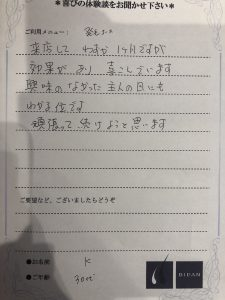 ＊喜びの体験談をお聞かせ下さい＊
ご利用メニュー：発毛コース
来店して わずか1ヶ月ですが
効果があり 喜こんでいます
興味のなかった主人の目にも
わかる位です
頑張って続けようと思います
ご要望など、ございましたらどうぞ
●お名前 K
●ご年齢 30代
BIDAN